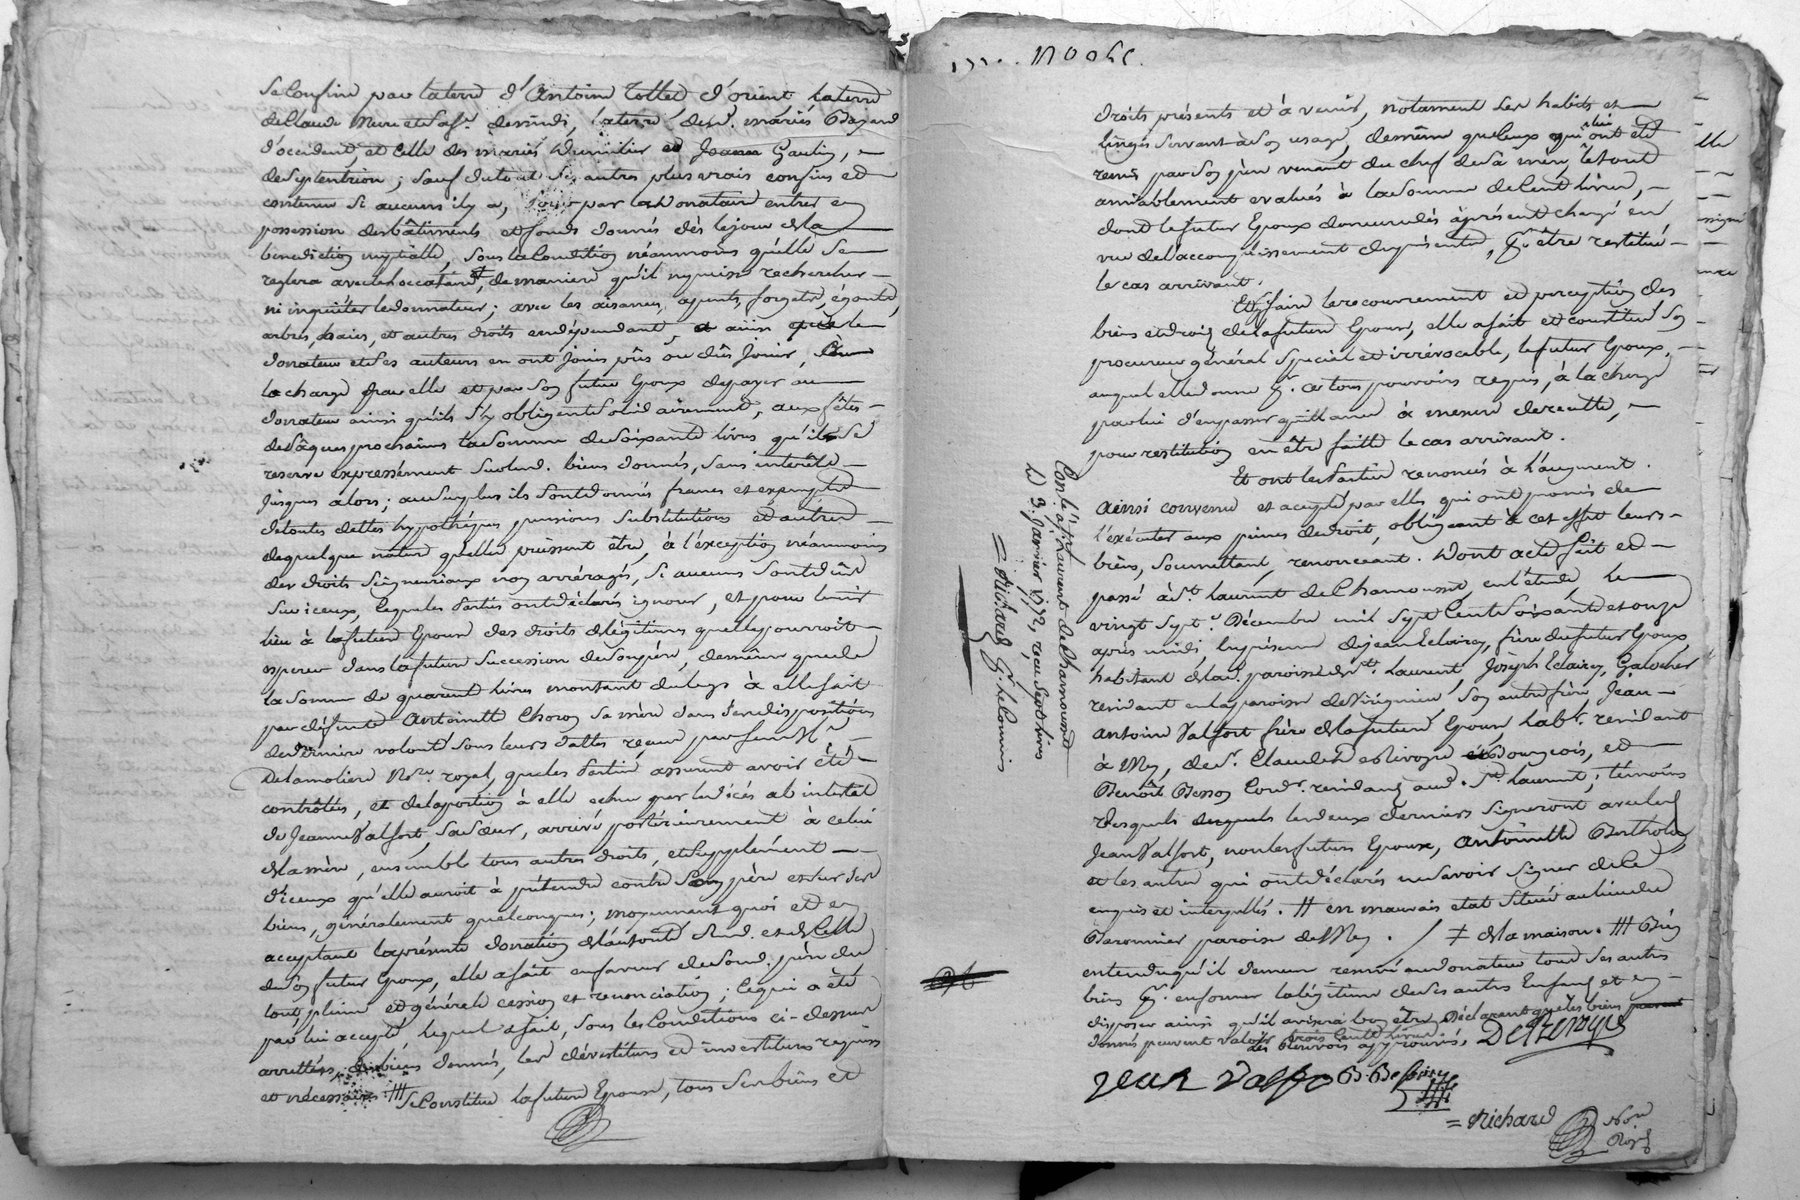 se confine par la terre d'Antoine Tollet d'orient la terre
de Claude mure et de midi, la terre des mariés Bazand
d'occident, et celle des mariés et Jeanne Gaulin,
de septentrion; sauf du tout ses autres plus vrais confins et
contenu si aucuns il y a, pour par la donataire entrer en
possession des bâtiments et fonds donnés dès le jour de la
benediction nuptialle, sous la condition néanmoins qu'elle se
reglera avec les locataires ‡, de maniere qu'il ne puisse rechercher
ni inquiéter le donnateur; avec les aisances, forgets, égouts,
arbres, haies, et autres droits en dépendant et ainsi que le
donateur et ses auteurs en ont joui pûs ou dûs jouir,
la charge par elle et par son futur Epoux de payer au
donateur ainsi qu'ils s'y obligent solidairement, aux fêtes
de Pâques prochaines la somme de soixante livres qu'il se
reserve expressément sur les d. biens donnés, sans interêts
jusques alors; au surplus ils sont donnés francs et exempts
de toutes dettes hypothéques pensions substitutions et autres
de quelque nature qu'elles puissent être, à l'éxception néanmoins
des droits seigneuriaux non arréragés, si aucuns sont dûs
sur iceux, lesquels parties ont déclarés ignorer, et pour tenir
lieu à la future Epouse des droits de légitime quelle pourroit
esperer dans la future succession de son père, de même que de
la somme de quarente livres montant du legs à elle fait
par défunte Antoinette Choron sa mère dans ses dispositions
de dernière volonté sous leurs dattes reçues par feu Me
Delamoliere Nore royal, que les parties assurent avoir été
contrôlées, et de la portion à elle echue par le décés ab intestat
de Jeanne Valfort, sa sœur, arrivé postérieurement à celui
de la mère, ensemble tous autres droits, et supplément
d'iceux qu'elle auroit à prétendre contre son père et sur ses
biens, généralement quelconques; moyennant quoi et en
acceptant la présente donation de l'autorité dud. et de celle
de son futur Epoux, elle a fait en faveur de son d. père du
tout, pleine et générale cession et renonciation; ce qui a été
par lui accepté, lequel a fait, sous les conditions ci-dessus
arrettées, des biens donnés, les dévestitures et investitures requises
et nécessaires. ## se constitue la future Epouse, tous ses biens et
droits présents et à venir, notament ses habits et
linges servant à son usage, de même que ceux qui lui ont été
remis par son père venant du chef de sa mère, le tout
amiablement evalués à la somme de cent livres,
dont le futur Epoux demeure dès àprésent chargé en
vue de l'accomplissement du présente, pr. être restitué
le cas arrivant.
Et pr. faire le recouvrement et perception des
biens et droits de la future Epouse, elle a fait et constitue son
procureur général special et irrévocable, le futur Epoux,
auquel elle donne pr. ce tous pouvoirs requis, à la charge
par lui d'en passer quittance à mesure de recette,
pour restitution en être faitte le cas arrivant.
Et ont les Parties renoncés à l'augment.
Ainsi convenu et accepté par elles qui ont promis de
l'éxécuter aux peines de droit, obligeant à cet effet leurs
biens, soumettant, renonceant. Dont acte fait et
passé à St. laurent de Chamousset, en l'étude, le
vingt sept. Décembre mil sept cent soixante et onze
après midi, en présence de jean Eclaircy, frère du futur Epoux
habitant de la d. paroisse de St. laurent, Joseph Eclaircy, Galocher
residant en la paroisse de Virignieu son autre frère, Jean
Antoine Valfort frère de la future Epouse, habt. residant
à Mey, de Sr. Claude Destivoye Bourgeois, et
Benoît Besson Cord. residants aud. St. laurent; témoins
desquels les deux derniers signeront avec led.
Jean Valfort, non les futurs Epoux, Antoinette Bertholon,
et les autres qui ont déclarés ne savoir signer de ce
enquis et interpellés. ‡‡ en mauvais etat situés au lieu du
Baronnier paroisse de Mey. / ‡ de la maison. ## Bien
entendu qu'il demeure reservé au donateur tous ses autres
biens pr. en former la légitime de ses autres Enfants et en
disposer ainsi qu'il avisera bon être Déclarant que les biens
donnés peuvent valoir trois cents livres.
les Renvois approuvés.
Jean Valfo B. Besson
= Richard Nore Royal
Conlé à St. Laurent de Chamousset
le 3. Janvier 1772, reçu sept livres
= Richard pr. le Commis